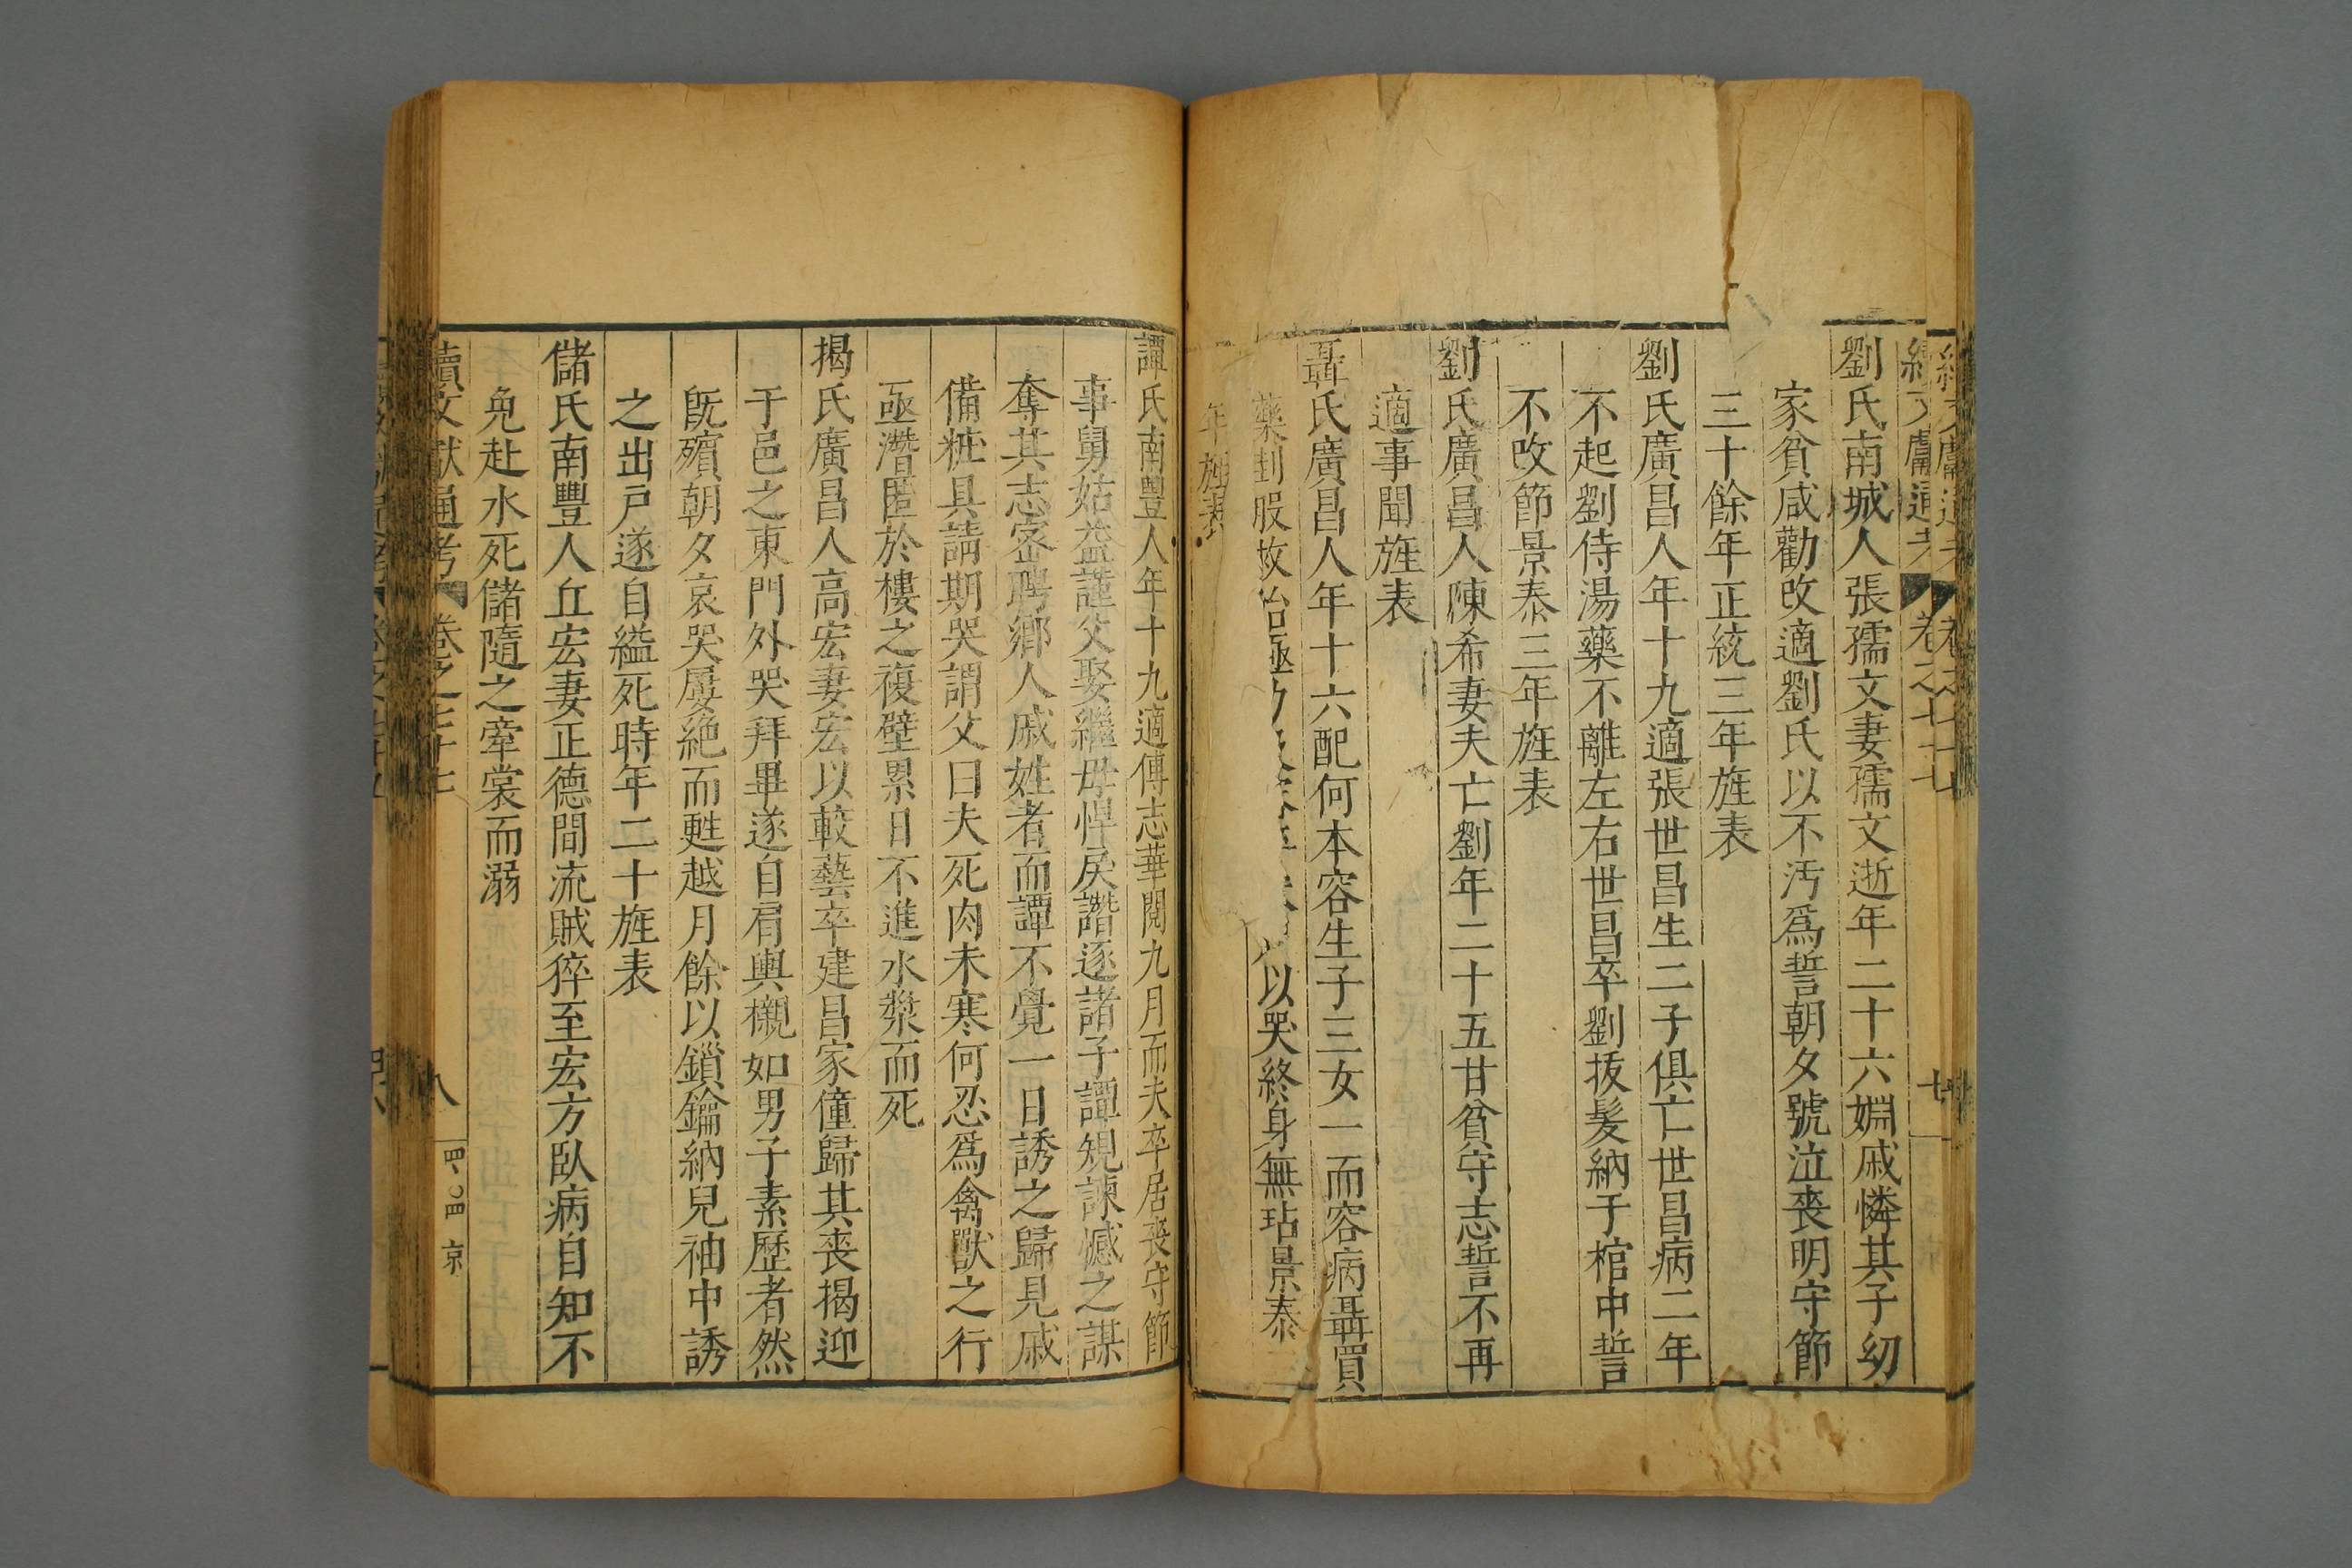 劉氏南城人張孺文妻孺文逝年二十六婣戚憐其子幼
家貧咸勸改適劉氏以不汚爲誓朝夕號泣喪明守節
三十餘年正統三年旌表
劉氏廣昌人年十九適張世昌生二子俱亡世昌病二年
不起劉侍湯藥不離左右世昌卒劉拔髮納于棺中誓
不改節景泰三年旌表
劉氏廣昌人陳希妻夫亡劉年二十五甘貧守志誓不再
適事聞旌表
聶氏廣昌人年十六配何本容生子三女一而容病聶買
藥刲股救治極力 以哭終身無玷景泰三
年旌表
譚氏南豐人年十九適傅志華閱九月而夫卒居喪守節
事舅姑益謹父娶繼母悍戾譖逐諸子譚規諫憾之謀
奪其志密聘鄉人戚姓者而譚不覺一日誘之歸見戚
備粧具請期哭謂父曰夫死肉未寒何忍爲禽獸之行
亟潛匿於樓之複壁累日不進水漿而死
揭氏廣昌人高宏妻宏以較藝卒建昌家僮歸其喪揭迎
于邑之東門外哭拜畢遂自肩輿櫬如男子素歷者然
旣殯朝夕哀哭屢絕而甦越月餘以鎖鑰納兒袖中誘
之出戸遂自縊死時年二十旌表
儲氏南豐人丘宏妻正德間流賊猝至宏方臥病自知不
免赴水死儲隨之牽裳而溺
續文獻通考 卷之七十七 八 四〇四 京